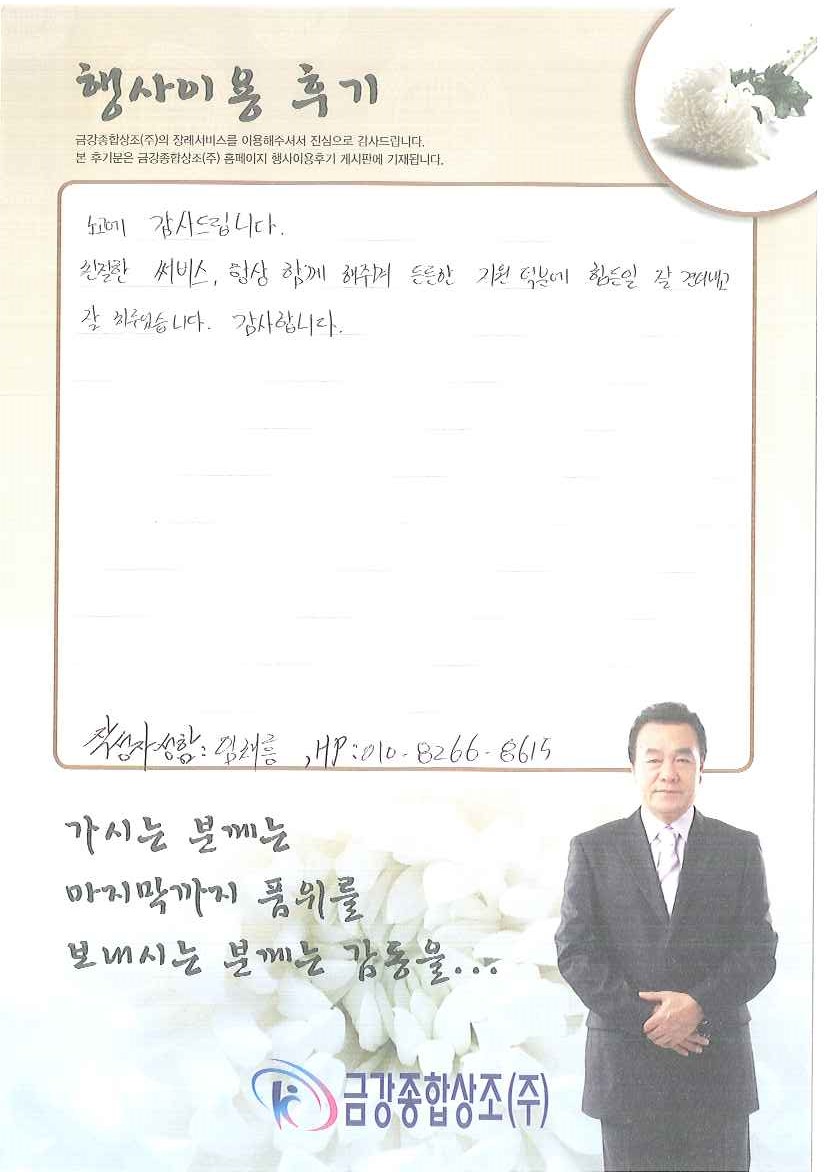 행사이용 후기
금강종합상조(주)의 장례서비스를 이용해주셔서 진심으로 감사드립니다.
본 후기분은 금강종합상조(주) 홈페이지 행사이용후기 게시판에 기재됩니다.
노고에 감사드립니다.
친절한 써비스, 항상 함께 해주셔 든든한 지원 덕분에 힘든일 잘 견뎌내고
잘 치루었습니다. 감사합니다.
작성자성함: 임채흥, HP:010-8266-8615
가시는 분께는
마지막까지 품위를
보내시는 분께는 감동을...
금강종합상조(주)